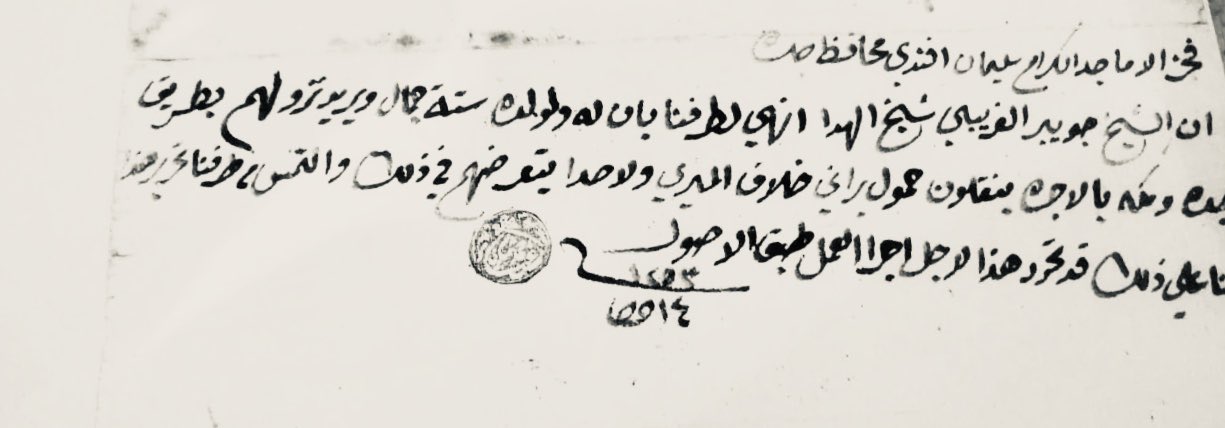 فخر الاماجد الكرام سليمان افندي محافظ جده
ان الشيخ جويبر الغريبي شيخ الهدا انهي لطرفنا بان له ولولده ستة جمال ويريدوا نزولهم بطريق
جده ومكه بالاجره ينقلون حمول براني خلاف الميري ولا احدا يتعرضهم في ذلك والتمس من طرفنا تحرير هذا
بنا علي ذلك قد تحرر هذا لاجل اجرا العمل طبق الاصول